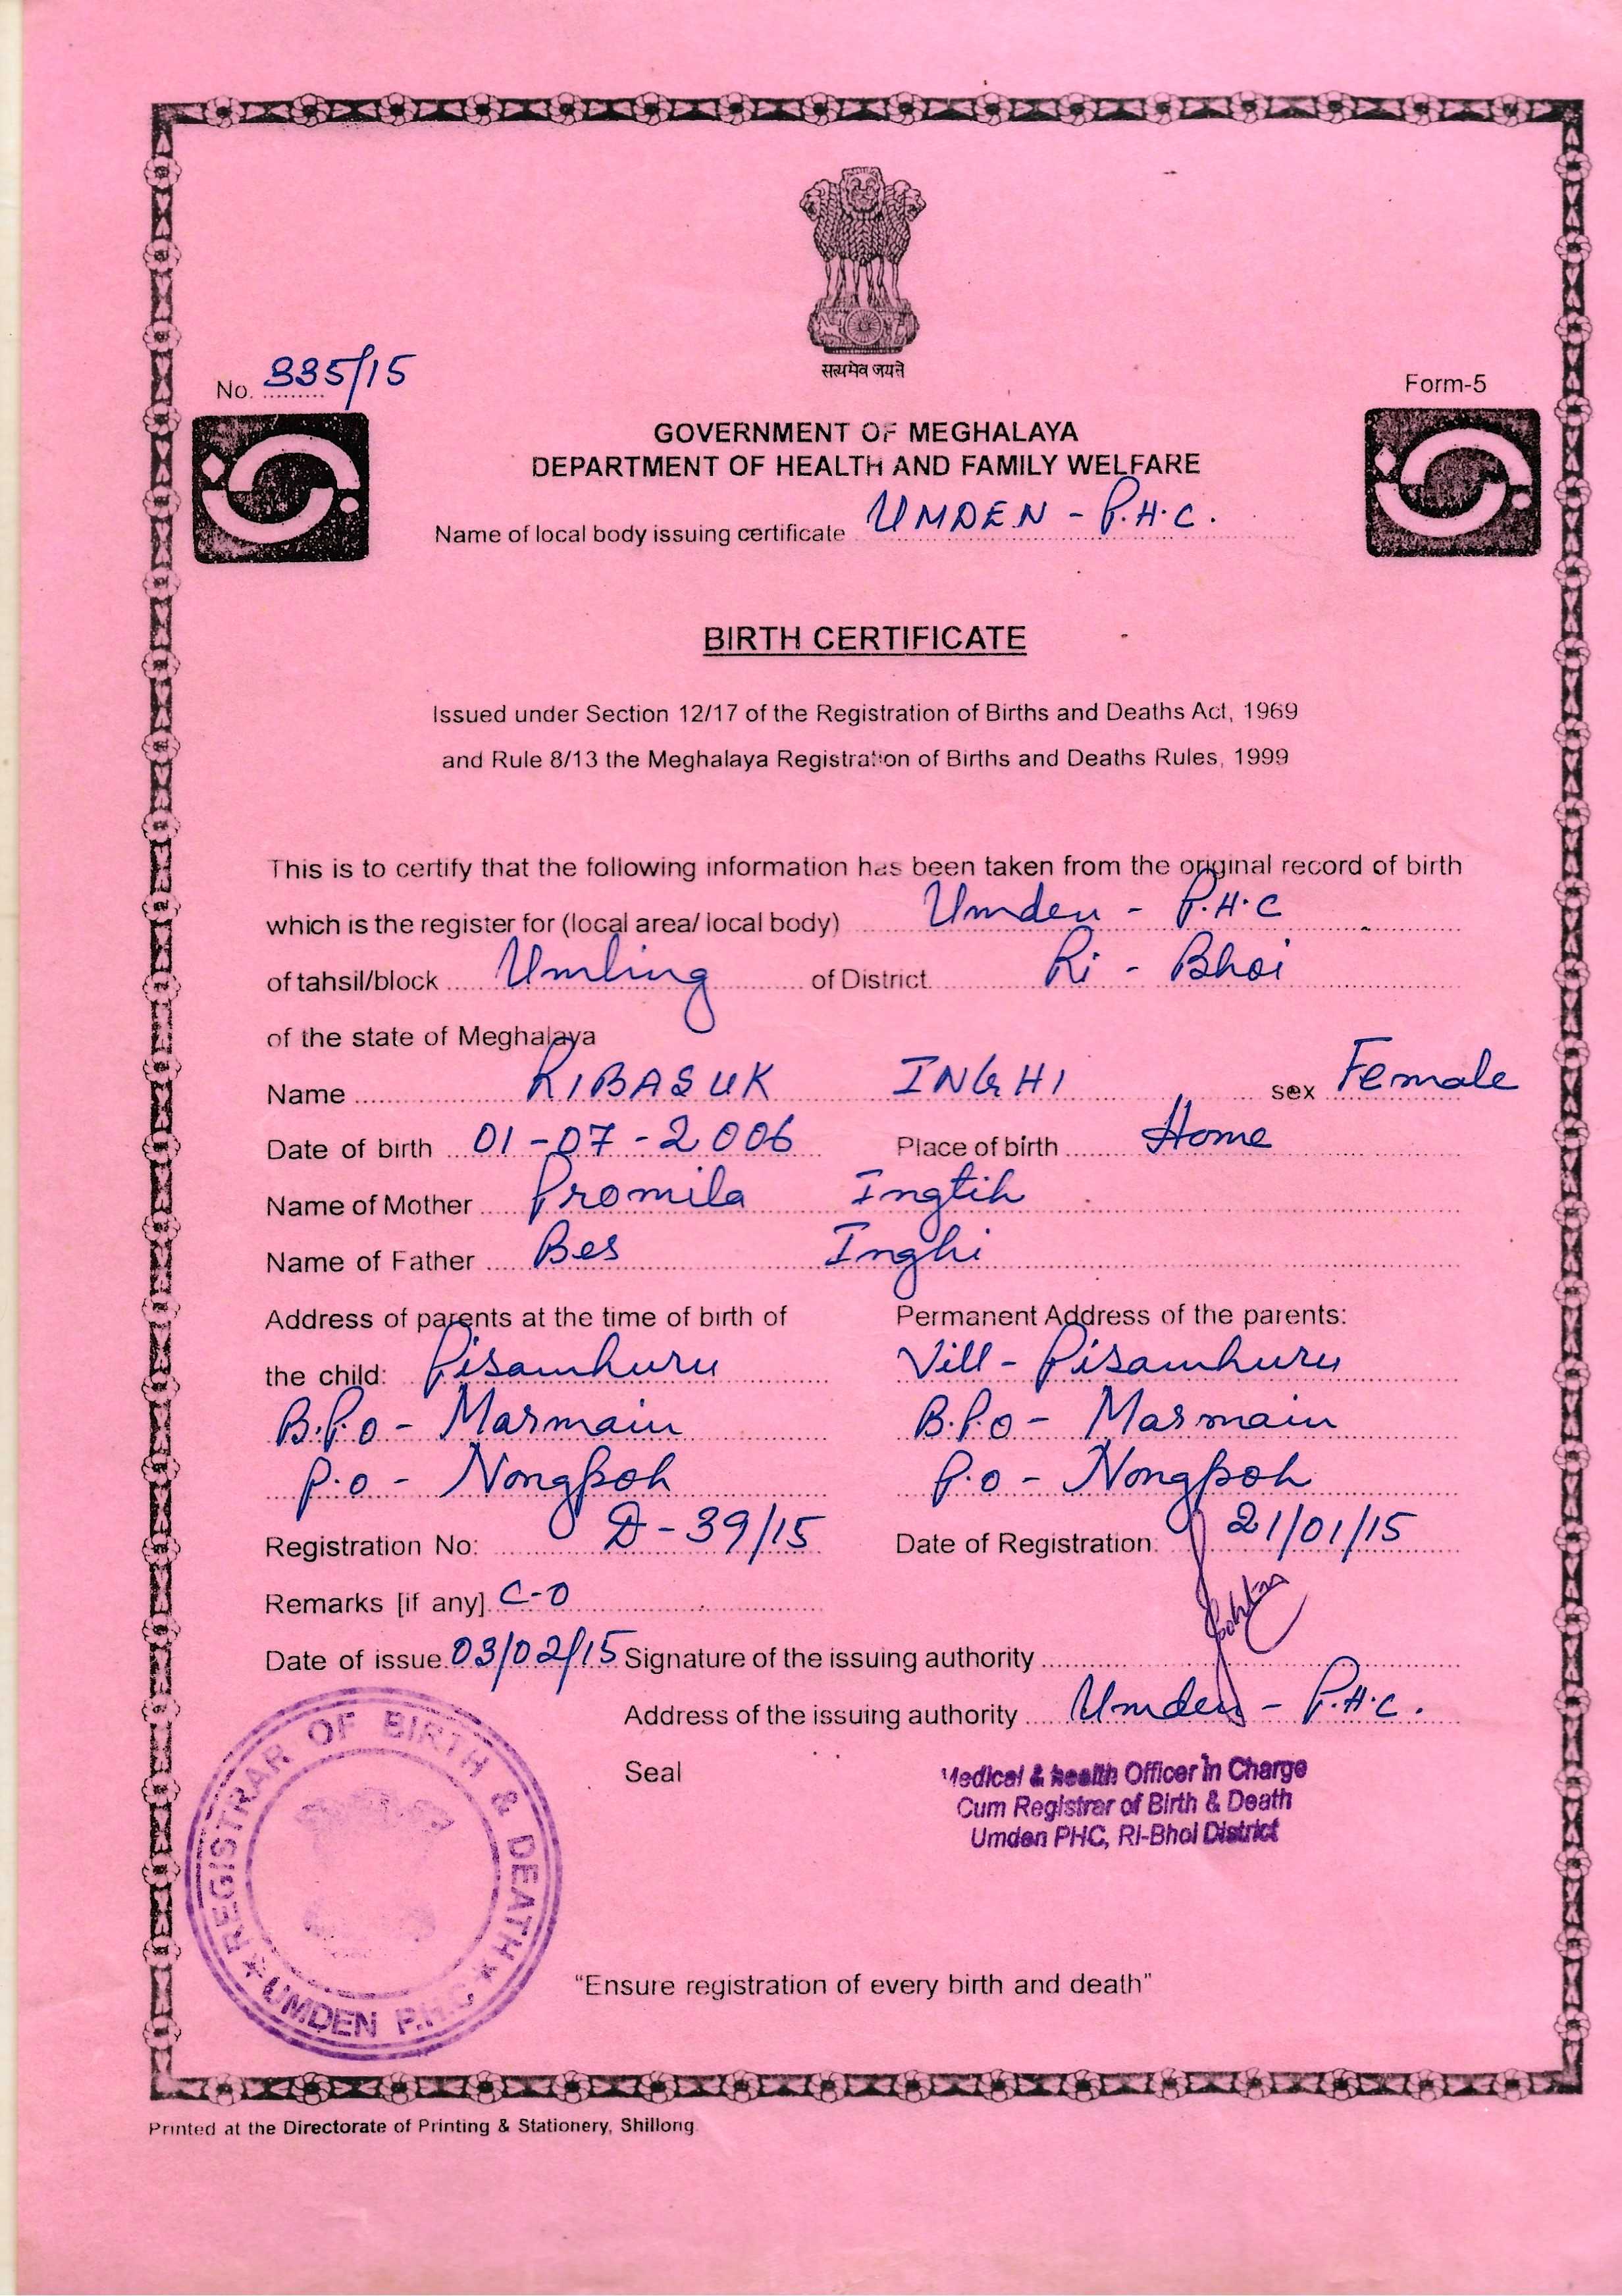 सत्यमेव जयते
No. 335/15
Form-5
GOVERNMENT OF MEGHALAYA
DEPARTMENT OF HEALTH AND FAMILY WELFARE
Name of local body issuing certificate UMDEN - P.H.C.
BIRTH CERTIFICATE
Issued under Section 12/17 of the Registration of Births and Deaths Act, 1969
and Rule 8/13 the Meghalaya Registration of Births and Deaths Rules, 1999
This is to certify that the following information has been taken from the original record of birth
which is the register for (local area/ local body) Umden - P.H.C
of tahsil/block Umling of District Ri - Bhoi
of the state of Meghalaya
Name RIBASUK INGHI sex Female
Date of birth 01-07-2006 Place of birth Home
Name of Mother Promila Ingtih
Name of Father Bes Inghi
Address of parents at the time of birth of Permanent Address of the parents:
the child: Pisamhuru Vill - Pisamhuru
B.P.O - Marmain B.P.O - Marmain
P.O - Nongpoh P.O - Nongpoh
Registration No: D-39/15 Date of Registration: 21/01/15
Remarks [if any] C-O
Date of issue 03/02/15 Signature of the issuing authority
Address of the issuing authority Umden - P.H.C.
Seal
Medical & health Officer In Charge
Cum Registrar of Birth & Death
Umden PHC, RI-Bhoi District
REGISTRAR OF BIRTH & DEATH
★ UMDEN P.H.C ★
"Ensure registration of every birth and death"
Printed at the Directorate of Printing & Stationery, Shillong.